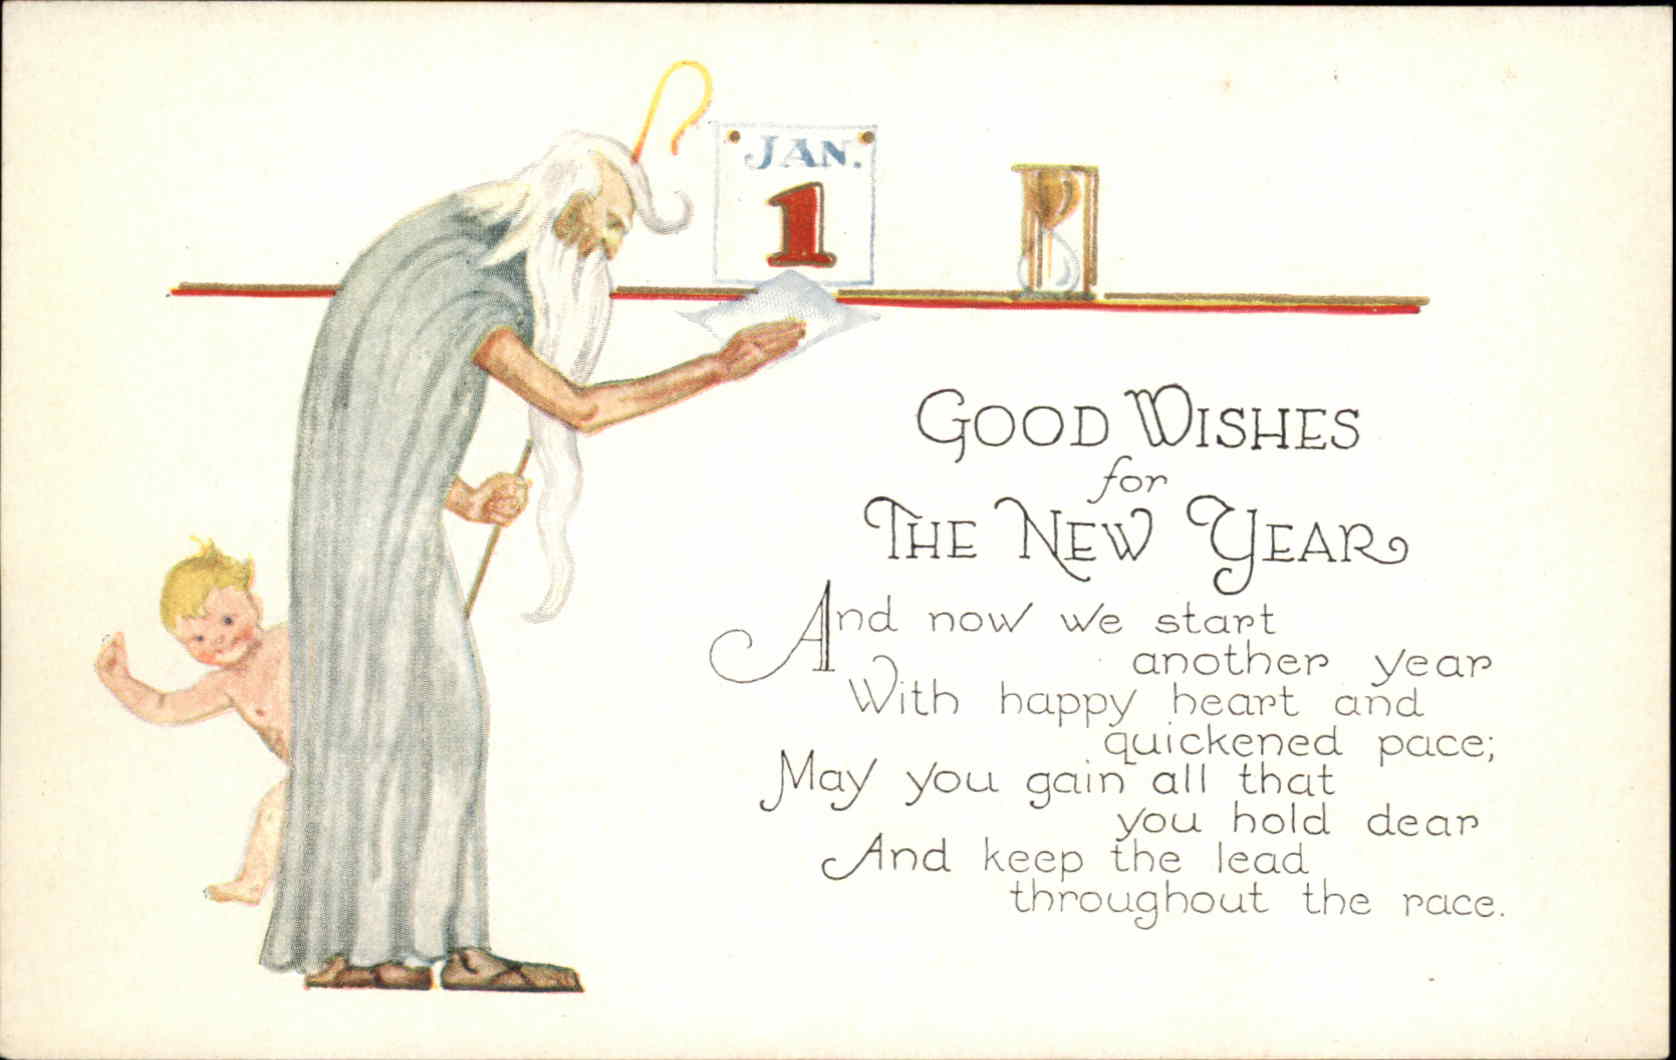 JAN.
1
GOOD WISHES
for
THE NEW YEAR
And now we start
another year
With happy heart and
quickened pace;
May you gain all that
you hold dear
And keep the lead
throughout the race.